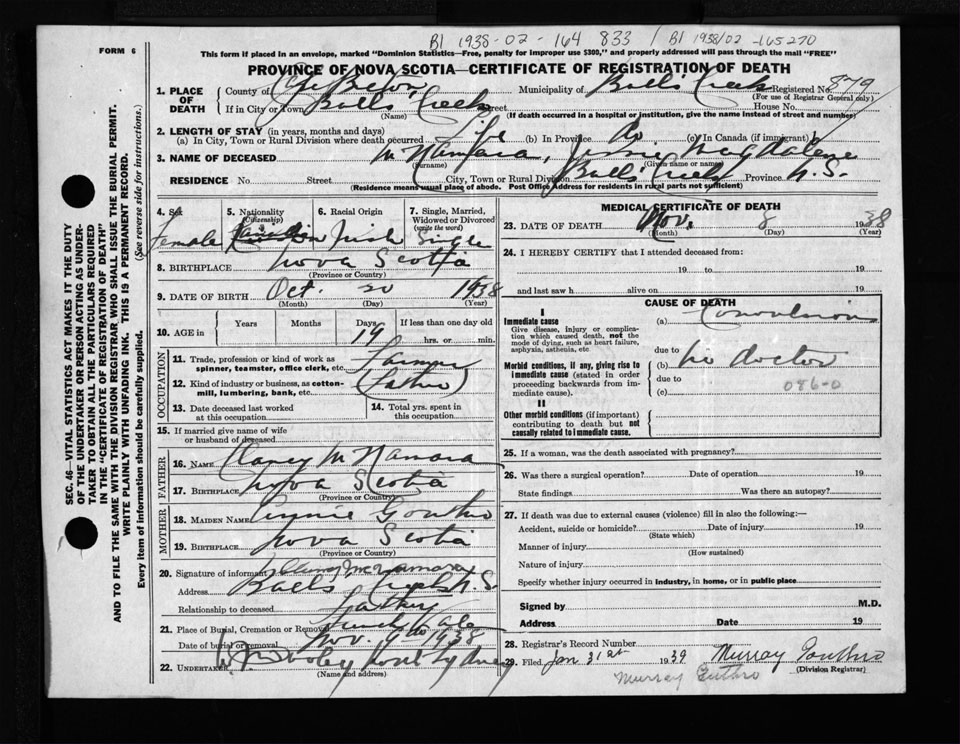 B1 1938-02-164 833 / B1 1938/02 -165270
FORM 6
This form if placed in an envelope, marked "Dominion Statistics—Free, penalty for improper use $300," and properly addressed will pass through the mail "FREE"
PROVINCE OF NOVA SCOTIA—CERTIFICATE OF REGISTRATION OF DEATH
1. PLACE OF DEATH County of Cape Breton Municipality of Balls Creek Registered No. 879
(For use of Registrar General only)
If in City or Town Balls Creek Street House No.
(Name) (If death occurred in a hospital or institution, give the name instead of street and number)
2. LENGTH OF STAY (in years, months and days)
(a) In City, Town or Rural Division where death occurred Life (b) In Province do (c) In Canada (if immigrant)
3. NAME OF DECEASED McNamara, Jennie Magdalene
(Surname) (Given name or names)
RESIDENCE No. Street City, Town or Rural Division Balls Creek Province N.S.
(Residence means usual place of abode. Post Office Address for residents in rural parts not sufficient)
4. Sex 5. Nationality (Citizenship) 6. Racial Origin 7. Single, Married, Widowed or Divorced (write the word)
Female Canadian Irish Single
8. BIRTHPLACE Nova Scotia
(Province or Country)
9. DATE OF BIRTH Oct. 20 1938
(Month) (Day) (Year)
10. AGE in Years Months Days If less than one day old
19 hrs. or min.
OCCUPATION
11. Trade, profession or kind of work as spinner, teamster, office clerk, etc. Farmer
12. Kind of industry or business, as cotton-mill, lumbering, bank, etc. (Father)
13. Date deceased last worked at this occupation
14. Total yrs. spent in this occupation
15. If married give name of wife or husband of deceased
FATHER
16. NAME Clancy McNamara
17. BIRTHPLACE Nova Scotia
(Province or Country)
MOTHER
18. MAIDEN NAME Annie Gouthro
19. BIRTHPLACE Nova Scotia
(Province or Country)
20. Signature of informant McNamara
Address Balls Creek N.S.
Relationship to deceased Father
21. Place of Burial, Cremation or Removal French Vale
Date of burial or removal Nov. 9 1938
22. UNDERTAKER Dooley North Sydney
(Name and address)
MEDICAL CERTIFICATE OF DEATH
23. DATE OF DEATH Nov. 8 1938
(Month) (Day) (Year)
24. I HEREBY CERTIFY that I attended deceased from:
19 to 19
and last saw h alive on 19
CAUSE OF DEATH
I
Immediate cause
Give disease, injury or complication which caused death, not the mode of dying, such as heart failure, asphyxia, asthenia, etc.
(a) Convulsions
due to
Morbid conditions, if any, giving rise to immediate cause (stated in order proceeding backwards from immediate cause).
(b) no doctor
due to
(c) 086-0
II
Other morbid conditions (if important) contributing to death but not causally related to immediate cause.
25. If a woman, was the death associated with pregnancy?
26. Was there a surgical operation? Date of operation 19
State findings Was there an autopsy?
27. If death was due to external causes (violence) fill in also the following:—
Accident, suicide or homicide? Date of injury 19
(State which)
Manner of injury
(How sustained)
Nature of injury
Specify whether injury occurred in industry, in home, or in public place
Signed by M.D.
Address Date 19
28. Registrar's Record Number
29. Filed Jan 31st 1939 Murray Gouthro
(Division Registrar)
Murray Guthro
SEC. 46—VITAL STATISTICS ACT MAKES IT THE DUTY
OF THE UNDERTAKER OR PERSON ACTING AS UNDER-
TAKER TO OBTAIN ALL THE PARTICULARS REQUIRED
IN THE "CERTIFICATE OF REGISTRATION OF DEATH"
AND TO FILE THE SAME WITH THE DIVISION REGISTRAR WHO SHALL ISSUE THE BURIAL PERMIT.
WRITE PLAINLY WITH UNFADING INK. THIS IS A PERMANENT RECORD.
Every item of information should be carefully supplied. (See reverse side for instructions.)